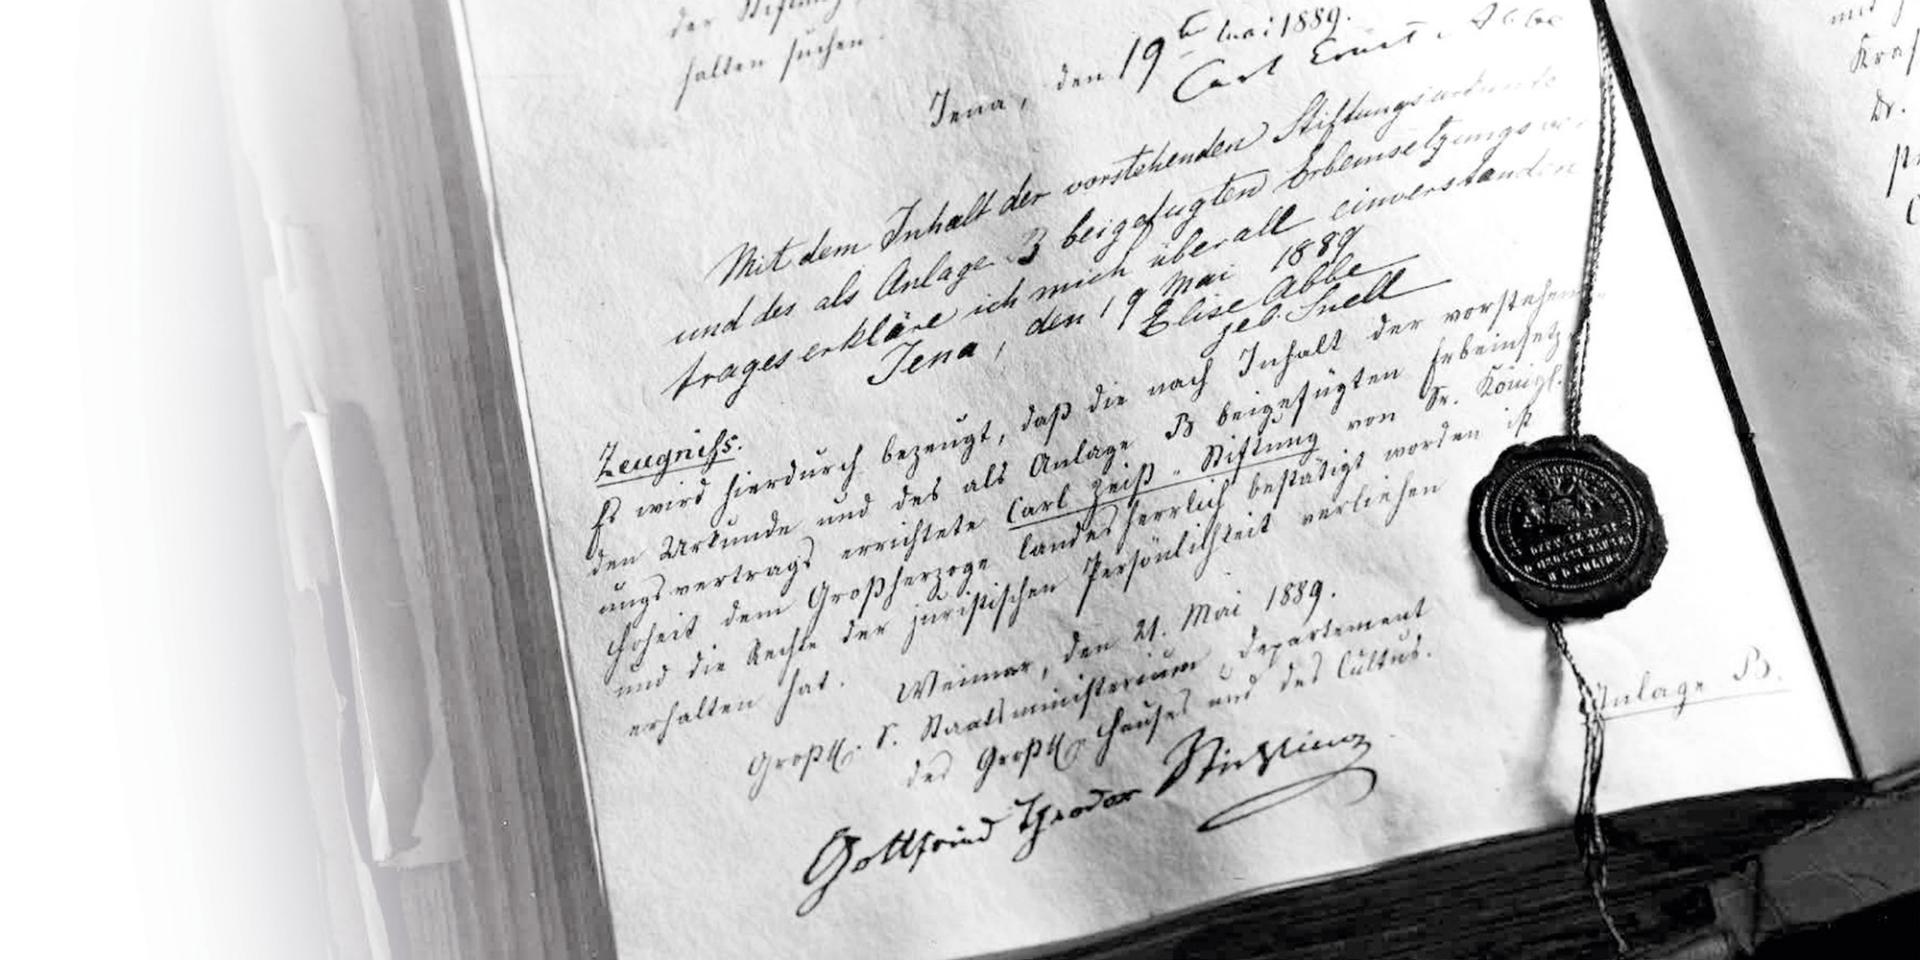 der Stiftung
halten suchen.
Jena, den 19t Mai 1889.
Carl Ernst Abbe
Mit dem Inhalt der vorstehenden Stiftungsurkunde
und des als Anlage B beigefügten Erbeinsetzungsver-
trages erkläre ich mich überall einverstanden
Jena, den 19 Mai 1889
Elise Abbe
geb. Snell
Zeugniß.
Es wird hierdurch bezeugt, daß die nach Inhalt der vorstehen-
den Urkunde und des als Anlage B beigefügten Erbeinsetz-
ungsvertrags errichtete Carl Zeiß-Stiftung von Sr. Königl.
Hoheit dem Großherzoge landesherrlich bestätigt worden ist
und die Rechte der juristischen Persönlichkeit verliehen
erhalten hat. Weimar, den 21. Mai 1889.
Großh. S. Staatsministerium, Departement
des Großh. Hauses und des Cultus.
Gottfried Theodor Stichling
Anlage B.
mit
Kraf
Dr.